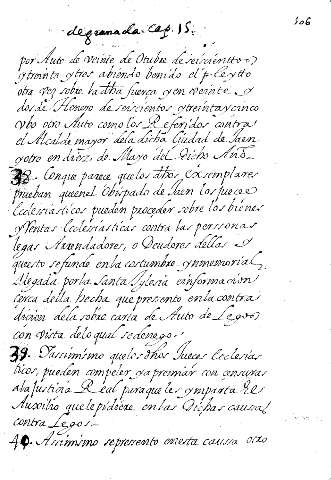 de granada. Cap. 15.
106
por Auto de Veinte de Otubre de seiscientos
y treinta y tres abiendo benido el pleytto
otra vez sobre la dha fuerça y en veinte y
dos de Henero de seiscientos y treinta y cinco
vbo otro Auto como los Referidos contra
el Alcalde mayor de la dicha Ciudad de Jaen
y otro en diez de Mayo del Dicho Año
38. Conque parece que los dhos Exsemplares
prueban que en el Obispado de Jaen los Jueces
Eclesiasticos pueden proceder sobre los bienes
y Rentas Eclesiasticas contra las personas
legas Arrendadores, o Deudores dellas y
questo se funde en la costumbre ynmemorial
llegada por la Santa Iglesia e informacion
cerca della hecha que presento en la contra
dicion de la sobre carta de Auto de Legos
con vista de lo qual se denego
39. Y assimismo que los dhos Jueces Eclesias
ticos, pueden compeler y apremiar con censuras
a la Justicia Real para que les ymparta el
Auxsilio que le pidiere en las Dichas causas
contra Legos
40. Assimismo se presento en esta caussa otro